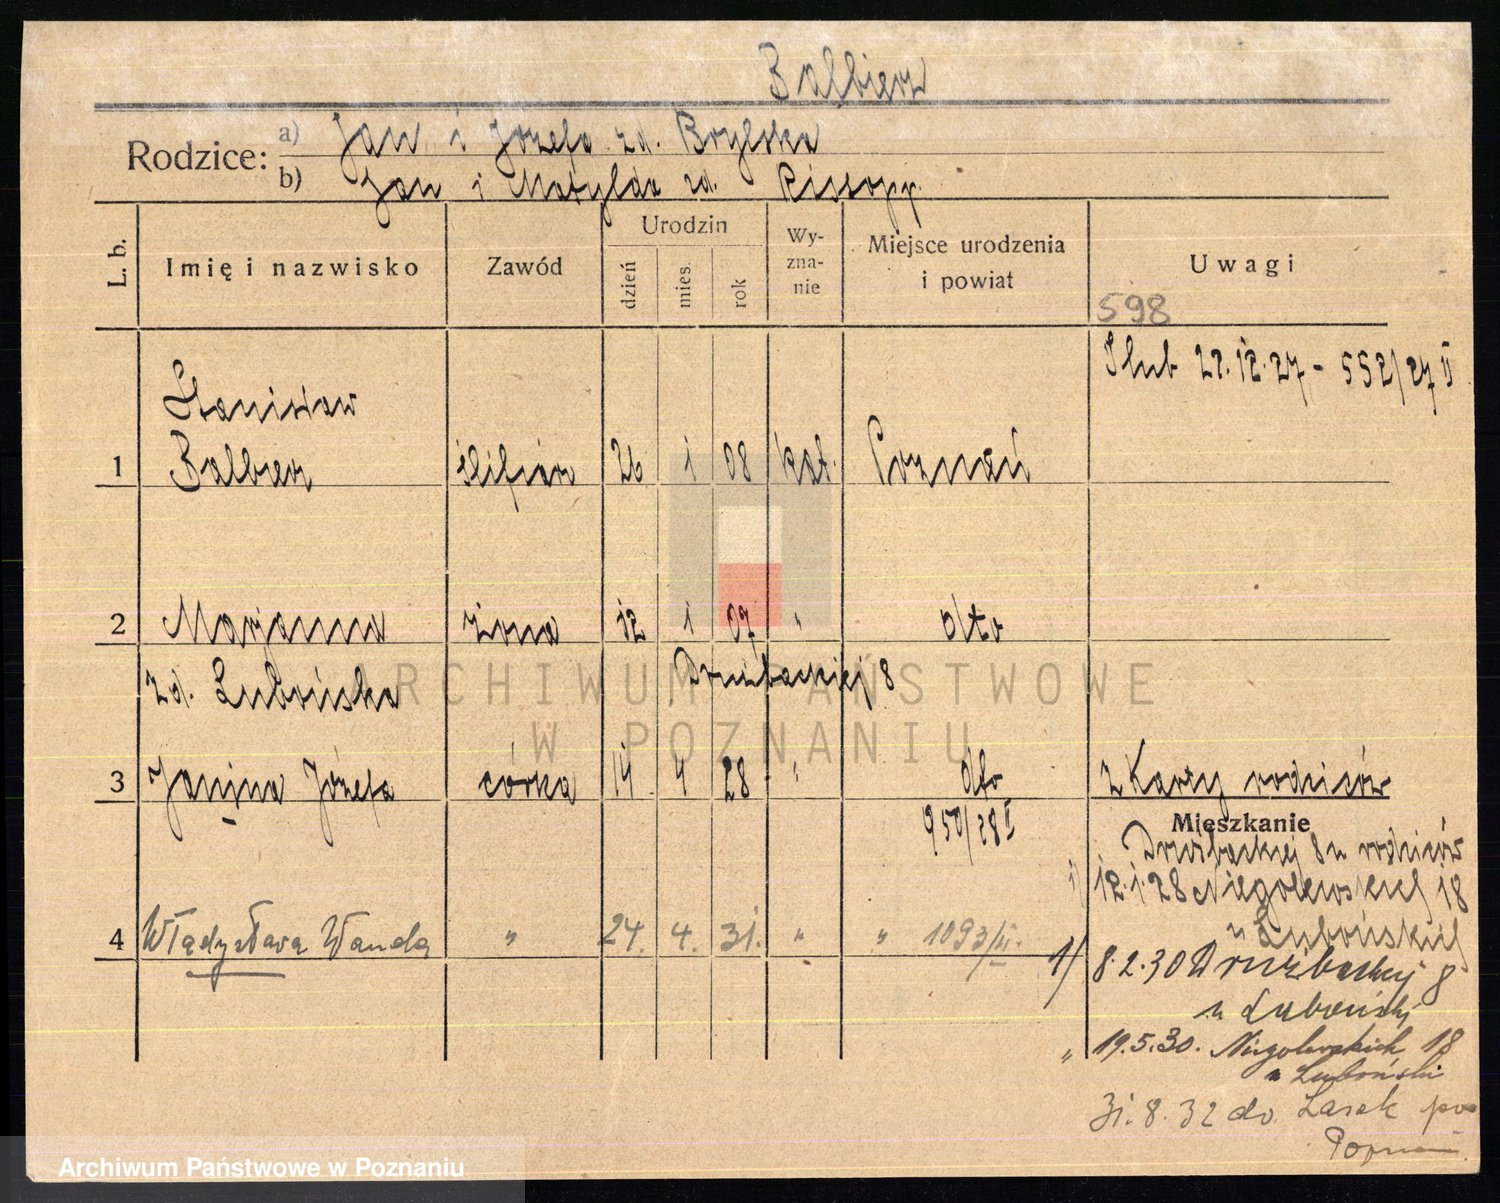 Balbierz
Rodzice: a) Jan i Józefa zd. Brylska
b) Jan i Matylda zd. Rissopp
L. b. Imię i nazwisko Zawód Urodzin dzień mies. rok Wy-zna-nie Miejsce urodzenia i powiat Uwagi
598
Ślub 27.12.27 - 552/27 II
Stanisław
1 Balbierz ślifierz 26 1 08 kat. Poznań
2 Marjanna żona 12 1 07 " dto
zd. Lubońska Drużbackiej 8
3 Janina Józefa córka 14 4 28 " dto Z Karty rodziców
950/28 I
Mieszkanie
Drużbackiej 8 u rodziców
1) 12.1.28 Niegolewskich 18
u Lubońskich
4 Władysława Wanda " 24. 4. 31. " " 1093/II.
1) 8.2.30 Drużbackiej 8
u Luboński
" 19.5.30. Niegolewskich 18
u Luboński
31.8.32 do Lasek
ARCHIWUM PAŃSTWOWE
W POZNANIU
Archiwum Państwowe w Poznaniu